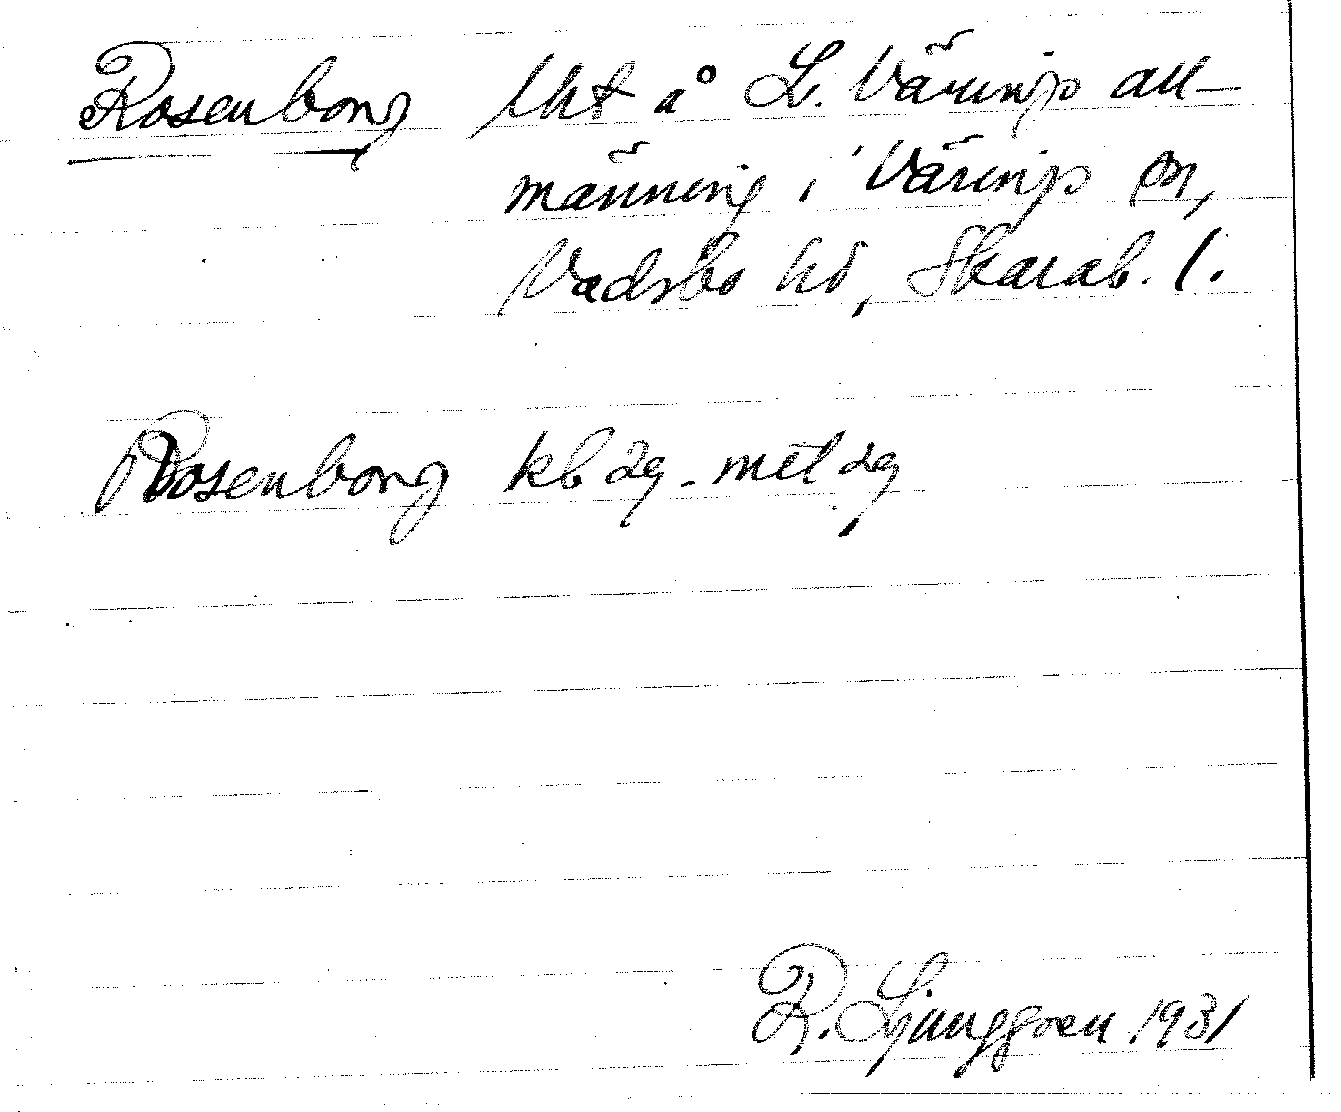 Rosenborg lht å L. Värings all-
männing i Värings sn,
Vadsbo hd, Skarab. l.
Rosenborg kb äg. - met äg
R. Ljunggren 1931